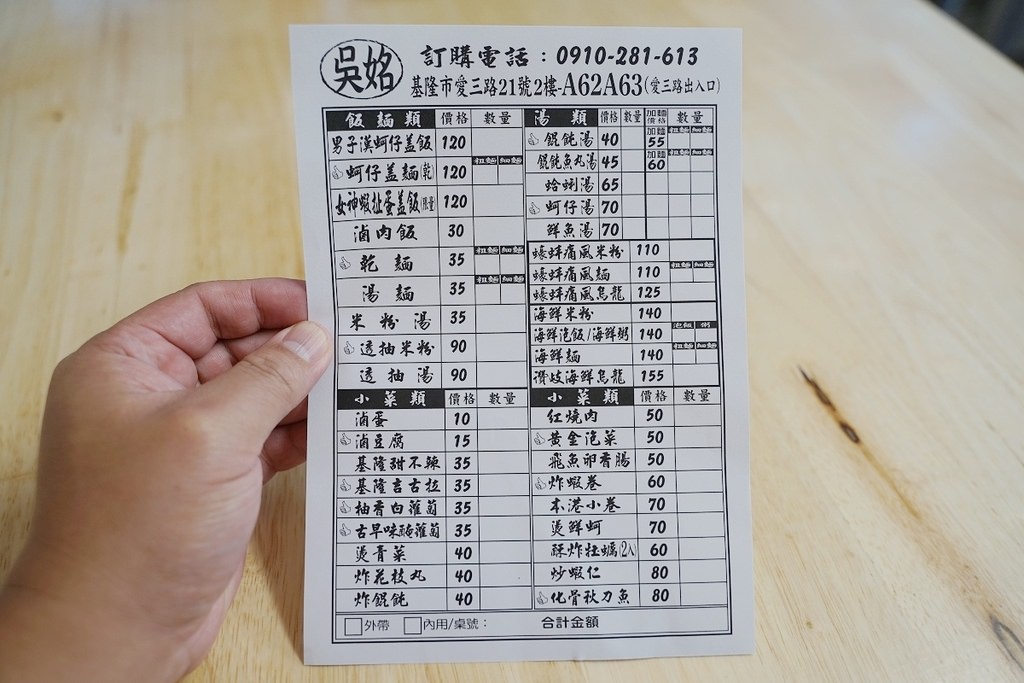 吳姳
訂購電話：0910-281-613
基隆市愛三路21號2樓-A62A63(愛三路出入口)
飯麵類 價格 數量
男子漢蚵仔盖飯 120
蚵仔盖麵(乾) 120 粗麵 細麵
女神蝦扯蛋盖飯(限量) 120
滷肉飯 30
乾麵 35 粗麵 細麵
湯麵 35 粗麵 細麵
米粉湯 35
透抽米粉 90
透抽湯 90
小菜類 價格 數量
滷蛋 10
滷豆腐 15
基隆甜不辣 35
基隆吉古拉 35
柚香白蘿蔔 35
古早味醃蘿蔔 35
燙青菜 40
炸花枝丸 40
炸餛飩 40
湯類 價格 數量 加麵價格 數量
餛飩湯 40 加麵55 粗麵 細麵
餛飩魚丸湯 45 加麵60 粗麵 細麵
蛤蜊湯 65
蚵仔湯 70
鮮魚湯 70
蠔蚌痛風米粉 110
蠔蚌痛風麵 110 粗麵 細麵
蠔蚌痛風烏龍 125
海鮮米粉 140
海鮮泡飯/海鮮粥 140 泡飯 粥
海鮮麵 140 粗麵 細麵
讚岐海鮮烏龍 155
小菜類 價格 數量
紅燒肉 50
黃金泡菜 50
飛魚卵香腸 50
炸蝦卷 60
本港小卷 70
燙鮮蚵 70
酥炸牡蠣(2入) 60
炒蝦仁 80
化骨秋刀魚 80
外帶 內用/桌號： 合計金額